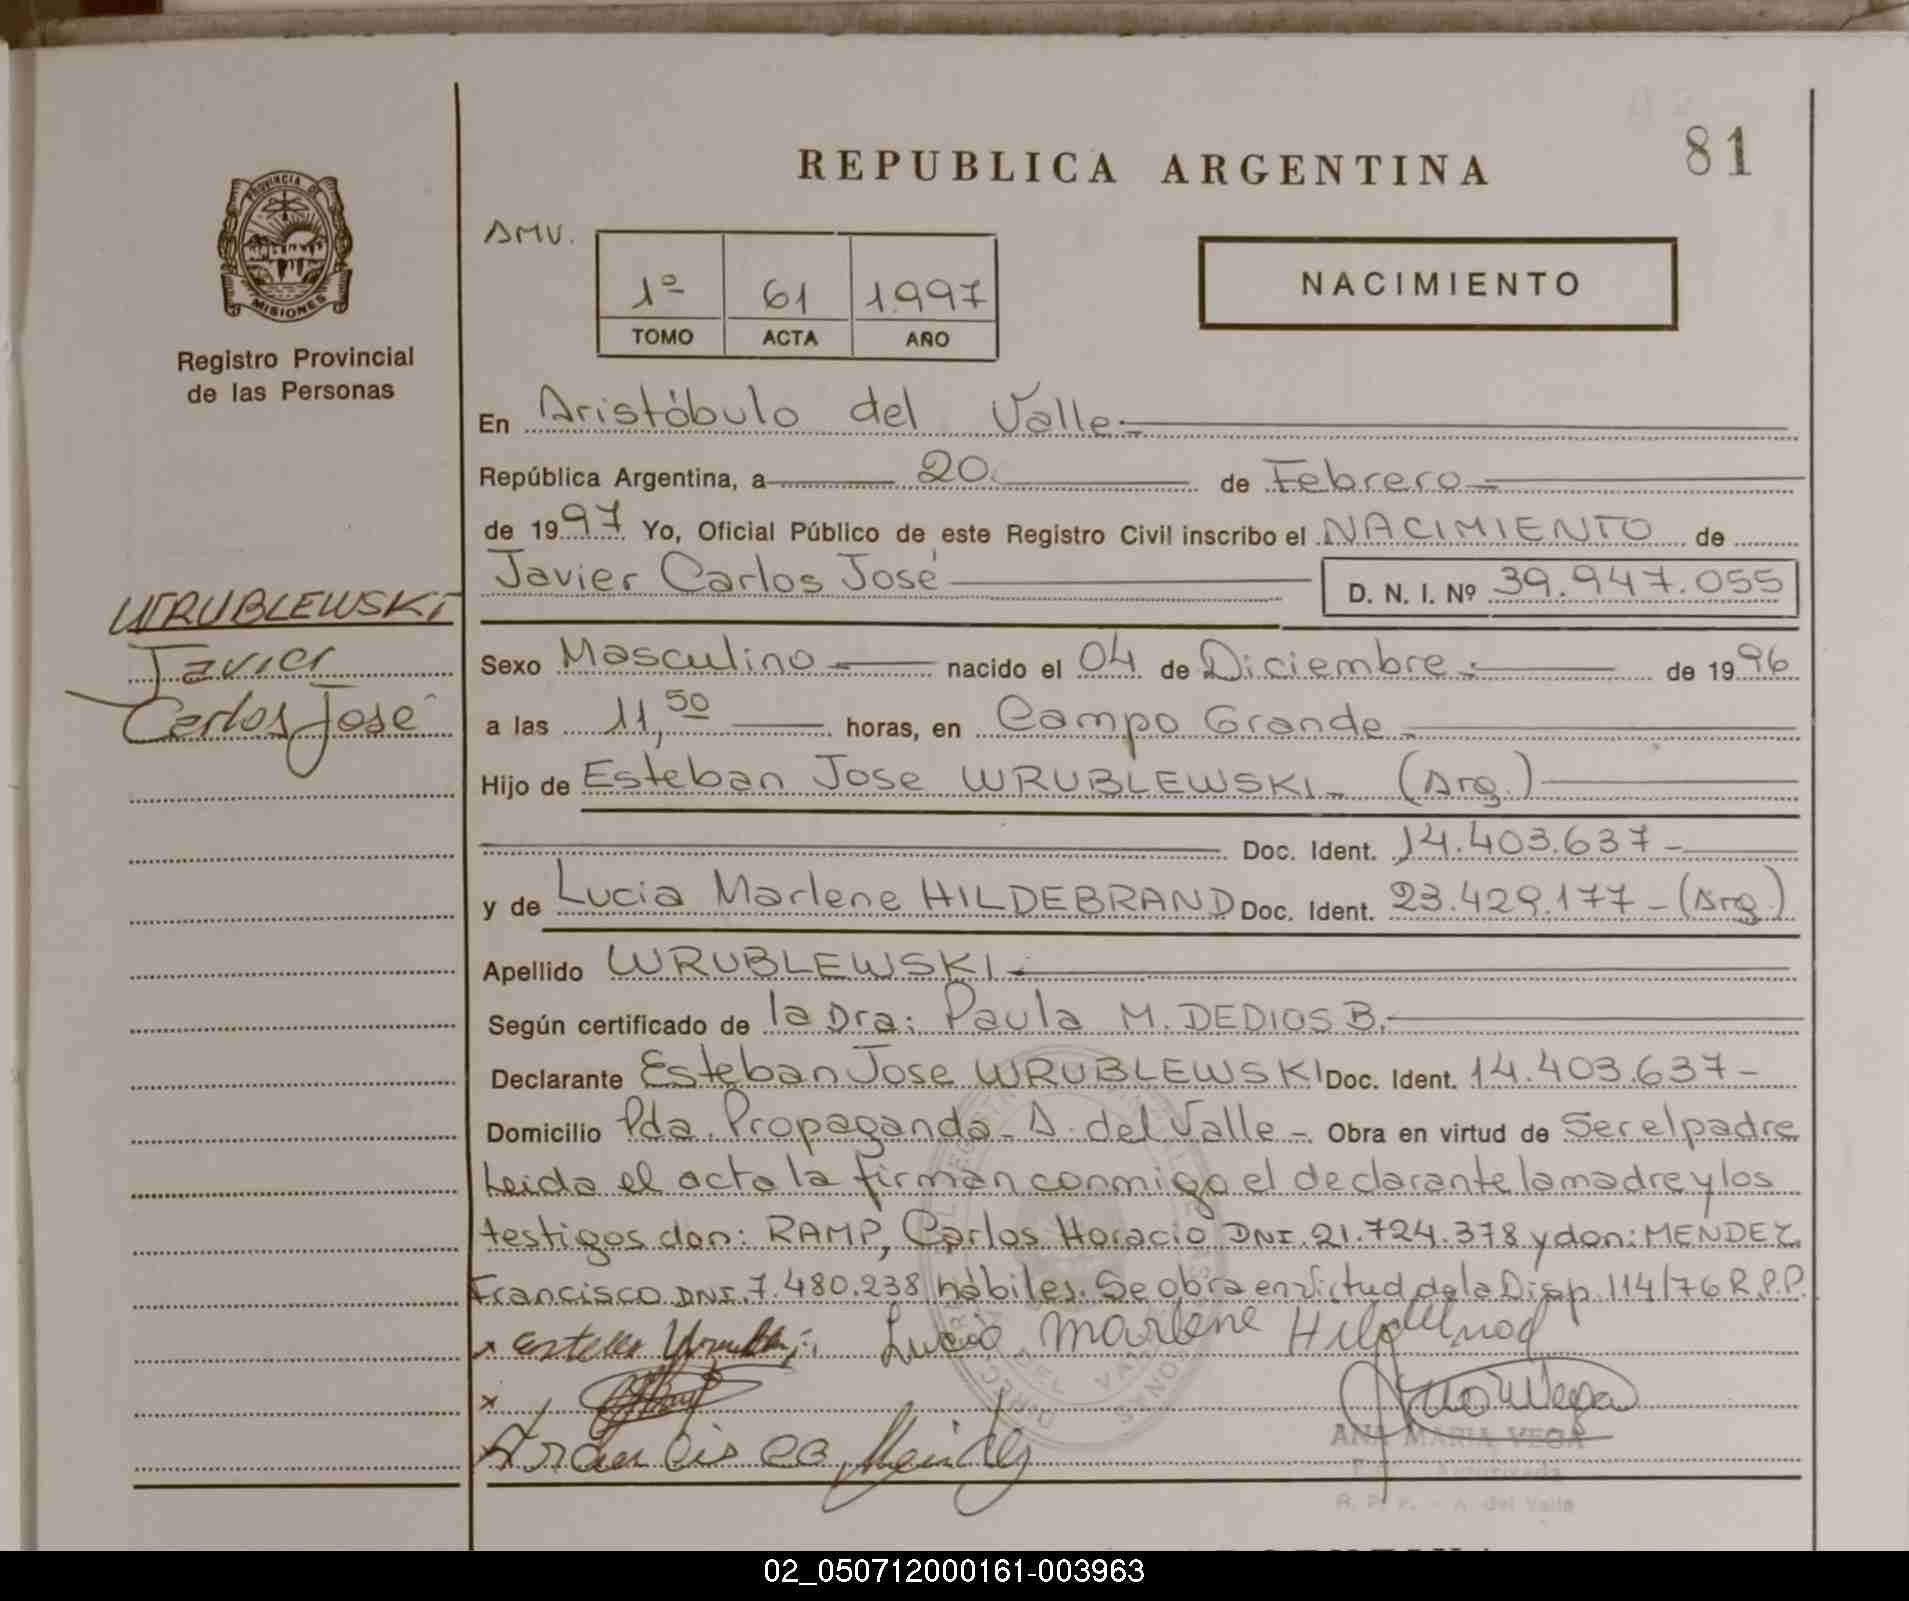 81
REPUBLICA ARGENTINA
AMV.
1º 61 1.997
TOMO ACTA AÑO
NACIMIENTO
PROVINCIA DE
MISIONES
Registro Provincial
de las Personas
WRUBLEWSKI
Javier
Carlos José
En Aristóbulo del Valle.-
República Argentina, a 20 de Febrero.-
de 1997 Yo, Oficial Público de este Registro Civil inscribo el NACIMIENTO de
Javier Carlos José D. N. I. Nº 39.947.055
Sexo Masculino.- nacido el 04 de Diciembre.- de 1996
a las 11,50 horas, en Campo Grande.-
Hijo de Esteban Jose WRUBLEWSKI.- (Arg.)
Doc. Ident. 14.403.637-
y de Lucia Marlene HILDEBRAND Doc. Ident. 23.429.177-(Arg.)
Apellido WRUBLEWSKI.-
Según certificado de la Dra: Paula M. DEDIOS B.-
Declarante Esteban Jose WRUBLEWSKI Doc. Ident. 14.403.637-
Domicilio Pda. Propaganda- A. del Valle- Obra en virtud de Ser el padre
Leida el acta la firman conmigo el declarante la madre y los
testigos don: RAMP, Carlos Horacio DNI.21.724.378 y don: MENDEZ
Francisco DNI.7.480.238 hábiles. Se obra en virtud de la Disp. 114/76 R.P.P.
Lucia Marlene Hildebrand
Francisco Mendez
ANA MARIA VEGA
Autorizada
R. P. P. - A. del Valle
02_050712000161-003963